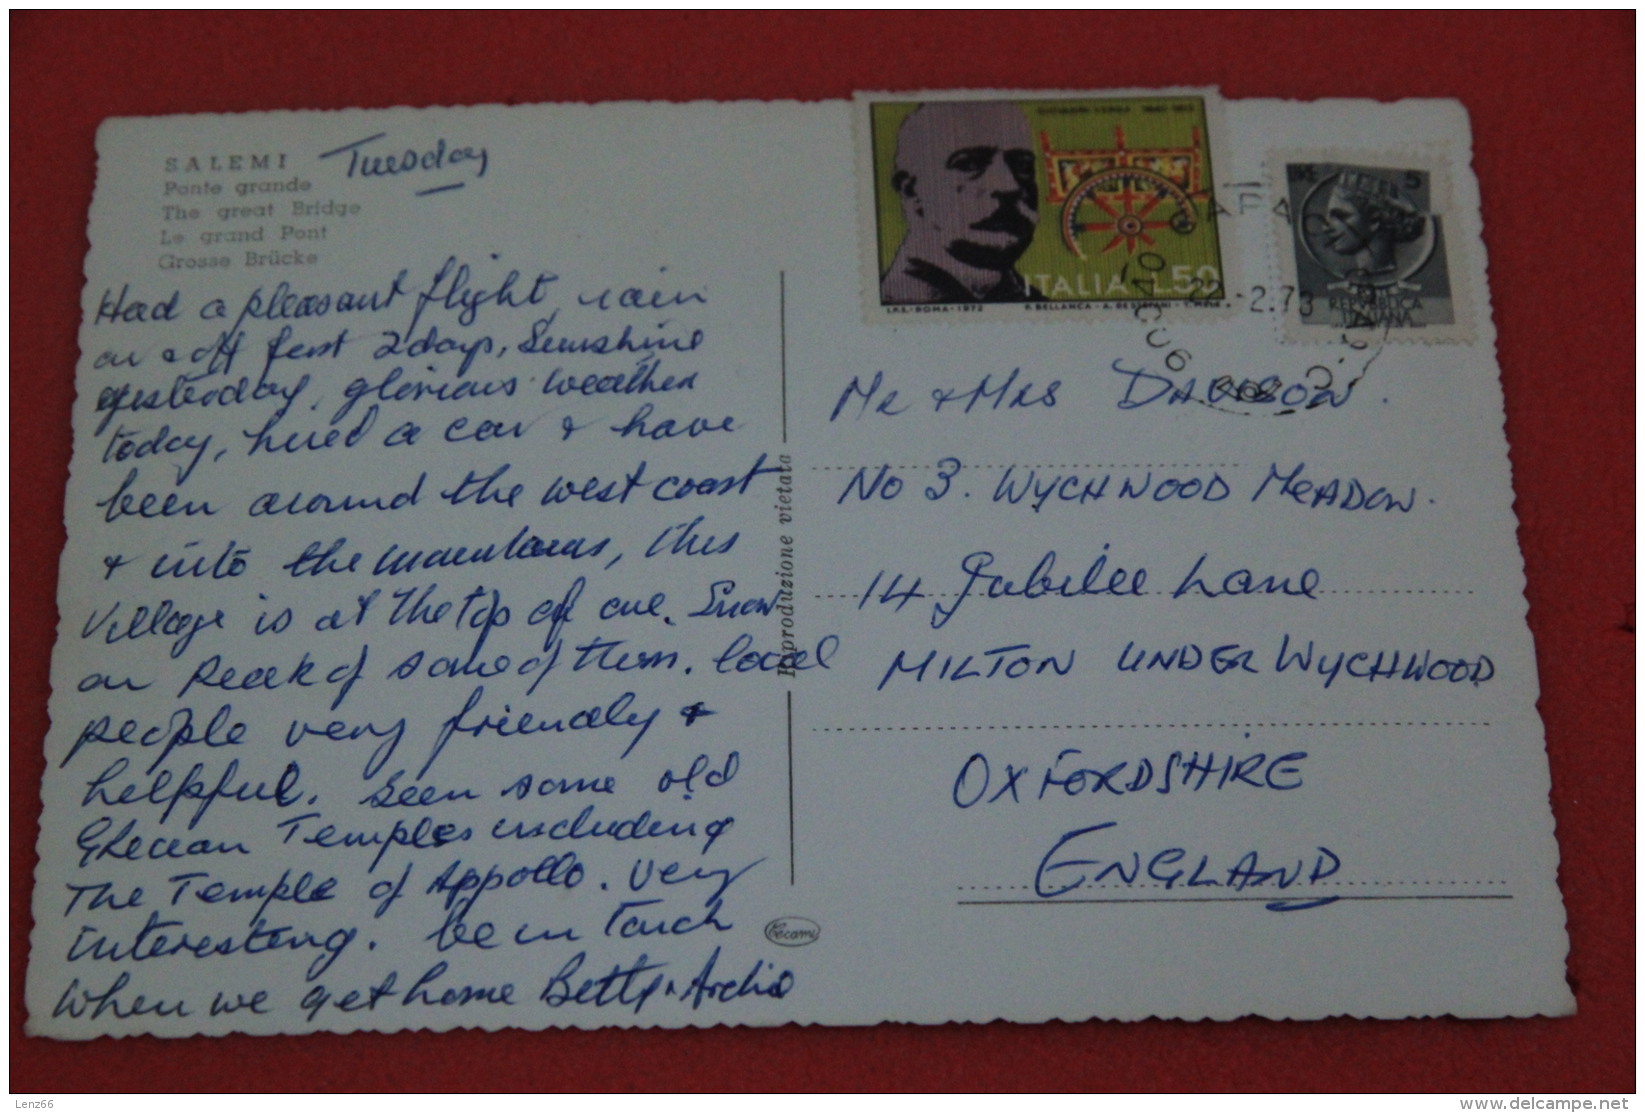 SALEMI
Ponte grande
The great Bridge
Le grand Pont
Grosse Brücke
Tuesday
Had a pleasant flight, rain
on & off first 2 days, Sunshine
yesterday, glorious weather
today, hired a car & have
been around the west coast
& into the mountains, this
Village is at the top of one. Snow
on Peak of some of them. local
people very friendly &
helpful. Seen some old
Grecian Temples including
The Temple of Appollo. Very
interesting. be in Touch
When we get home Betty & Archie
Riproduzione vietata
GIOVANNI VERGA 1840-1922
ITALIA L.50
I.P.S.-ROMA-1972
LIRE 5
REPUBBLICA
ITALIANA
22.-2.73
Mr & Mrs DAVISON.
No 3. WYCHWOOD MEADOW.
14 Jubilee Lane
MILTON UNDER WYCHWOOD
OXFORDSHIRE
ENGLAND
Lenz66
www.delcampe.net